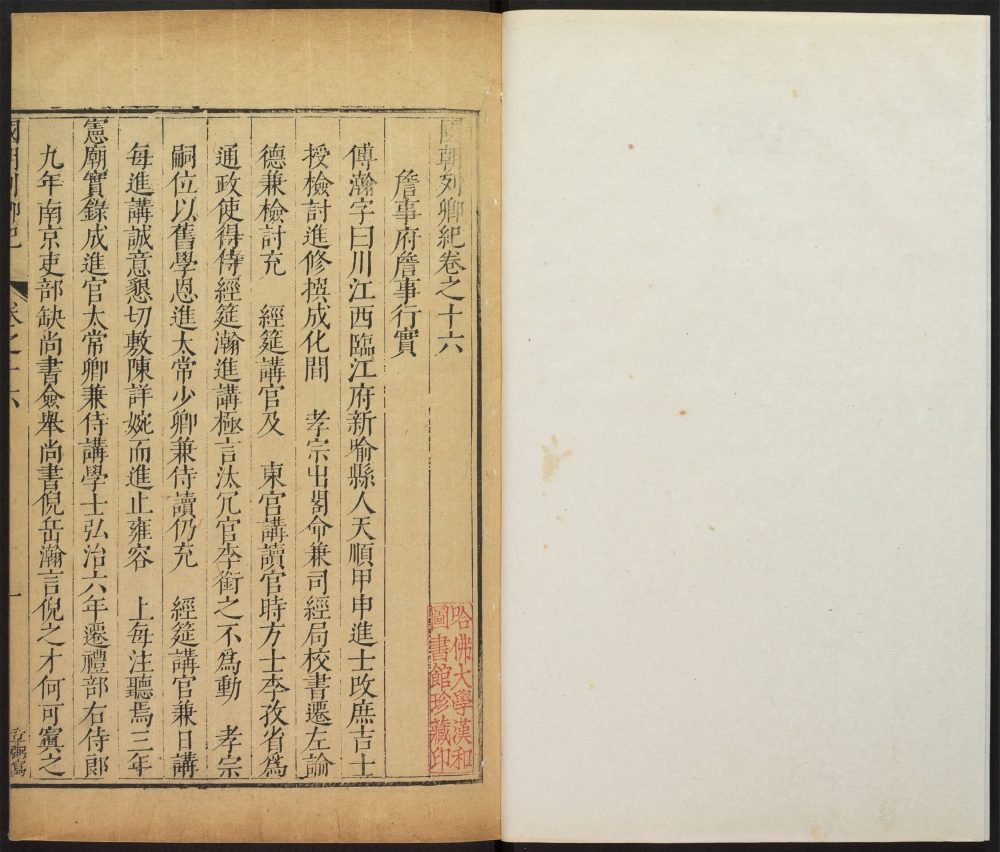 國朝列卿紀卷之十六
詹事府詹事行實
傅瀚字曰川江西臨江府新喻縣人天順甲申進士改庶吉士
授檢討進修撰成化間　孝宗出閣命兼司經局校書遷左諭
德兼檢討充　經筵講官及　東宮講讀官時方士李孜省爲
通政使得侍經筵瀚進講極言汰冗官李銜之不爲動　孝宗
嗣位以舊學恩進太常少卿兼侍讀仍充　經筵講官兼日講
每進講誠意懇切敷陳詳婉而進止雍容　上每注聽焉三年
憲廟實錄成進官太常卿兼侍講學士弘治六年遷禮部右侍郎
九年南京吏部缺尚書僉舉尚書倪岳瀚言倪之才何可寘之
國朝列卿紀　卷之十六　一
哈佛大學漢和
圖書館珍藏印